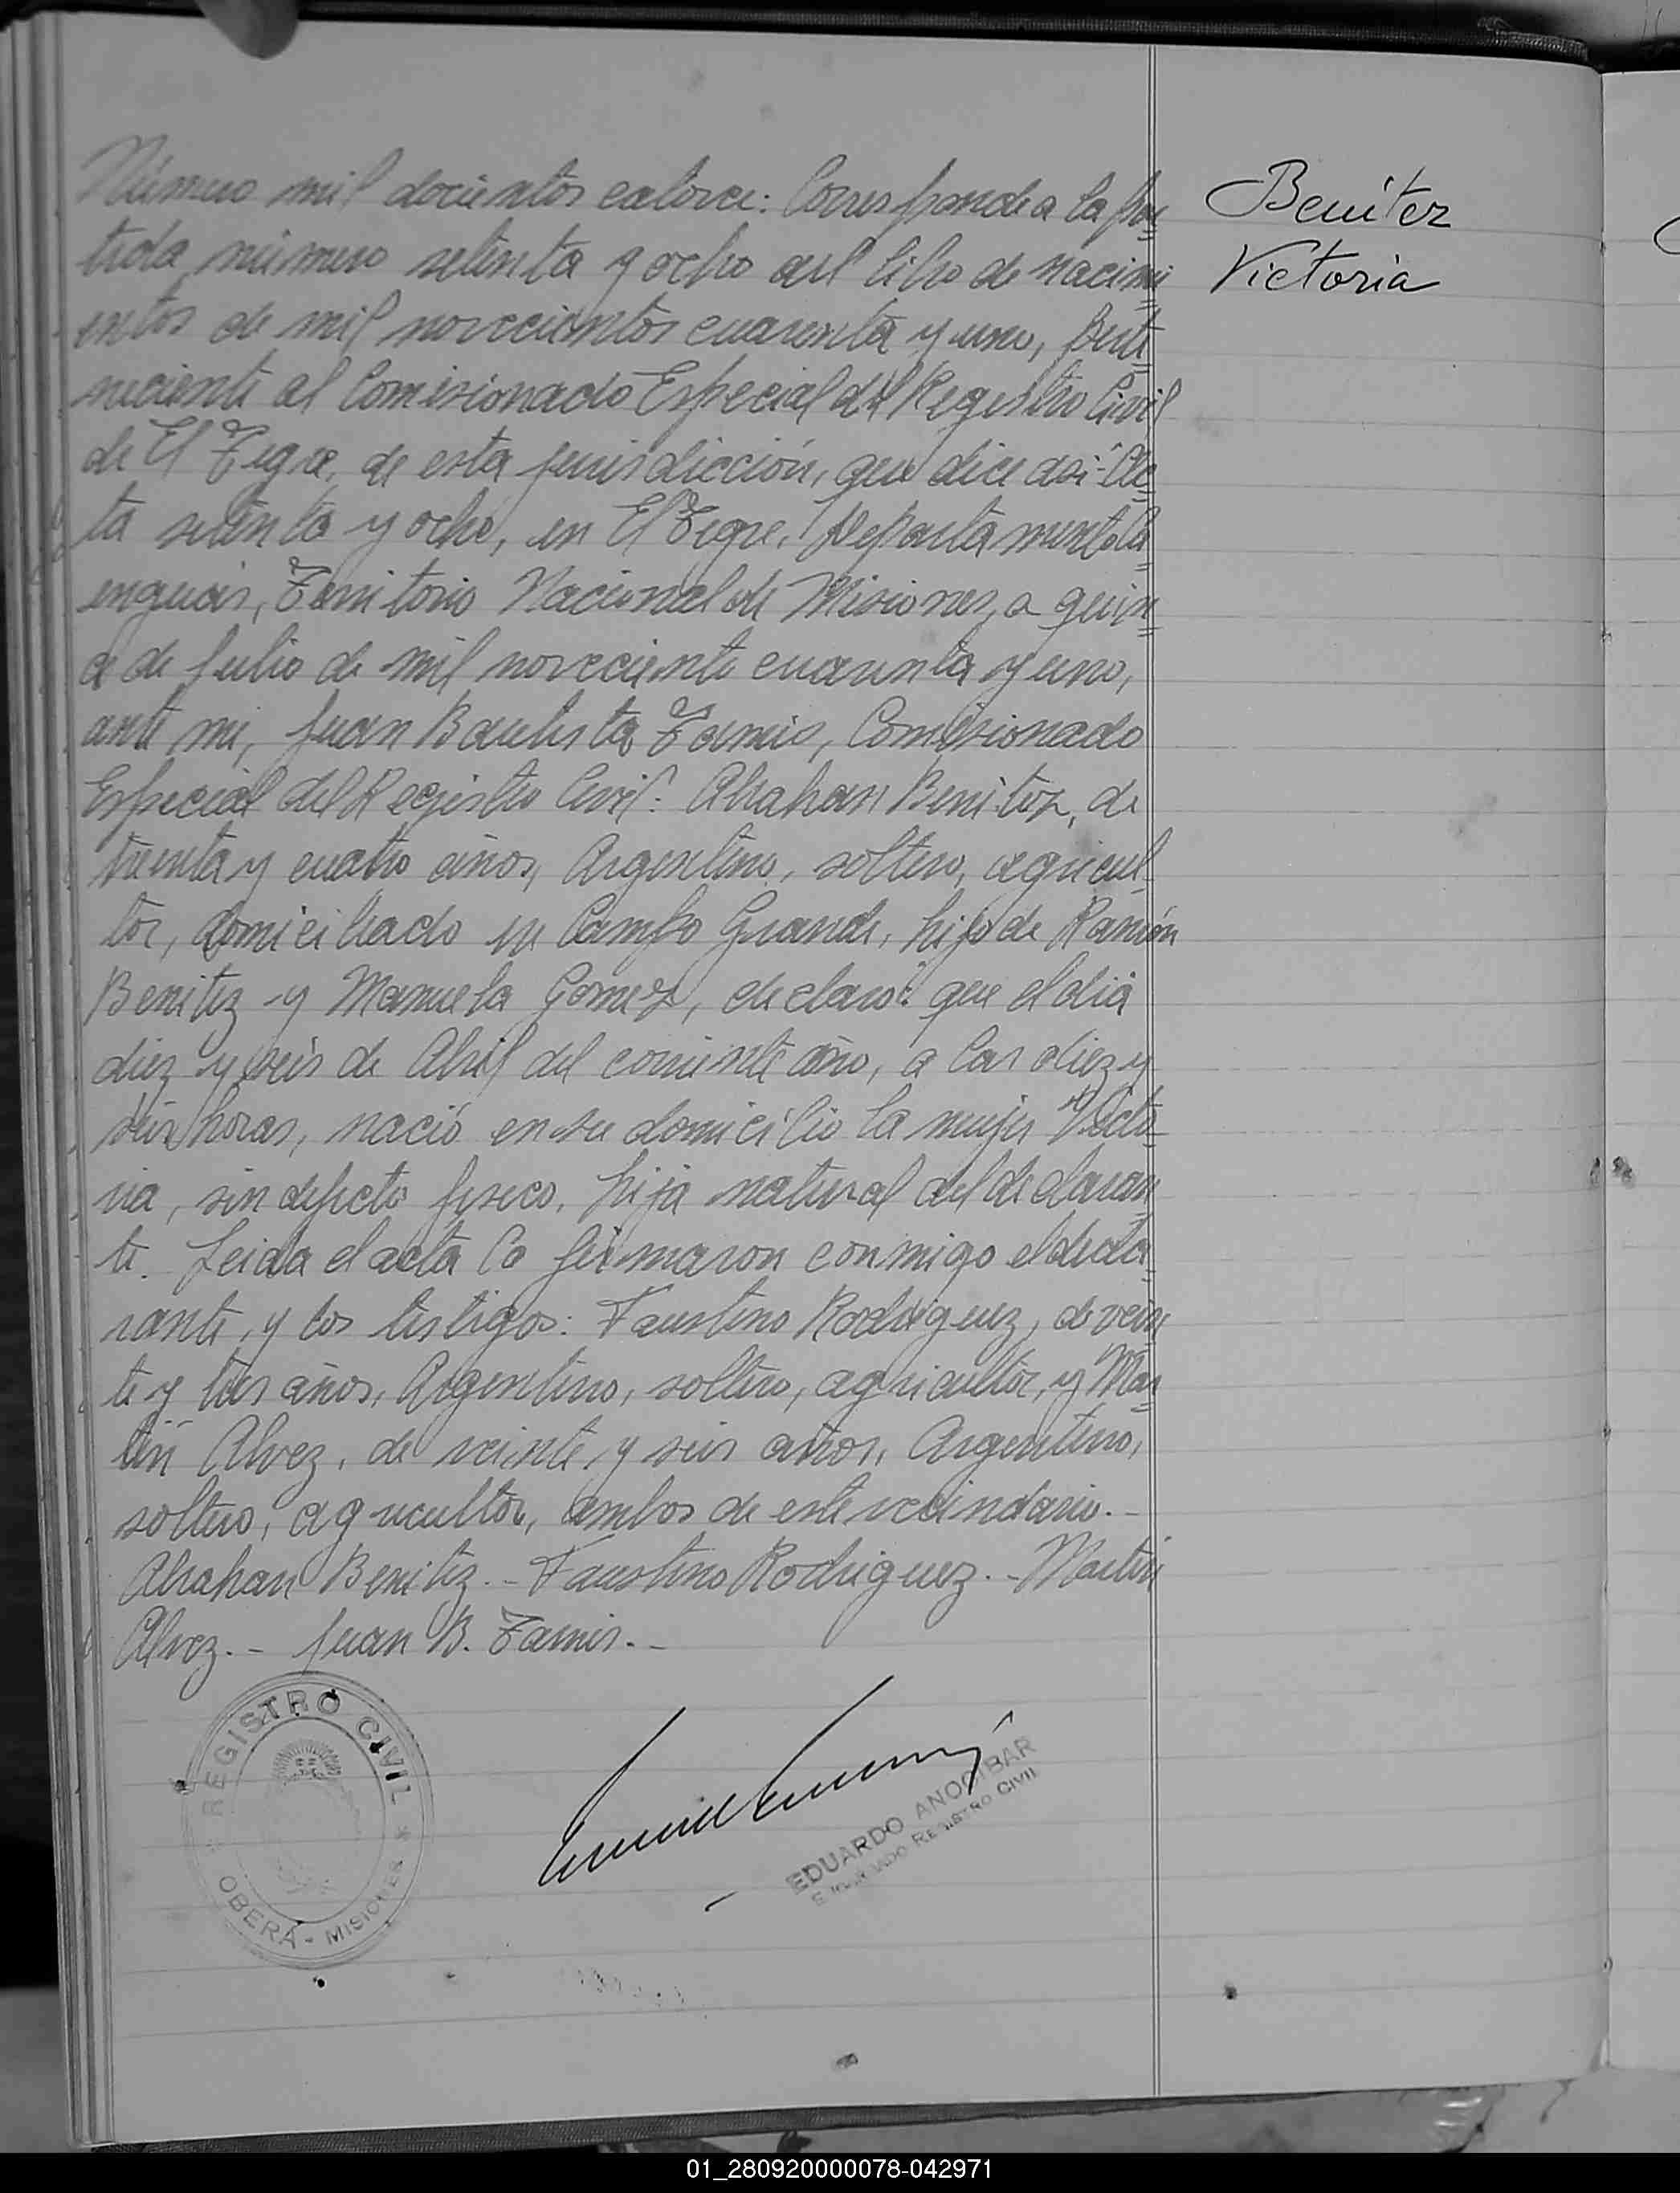 Número mil docientos catorce: Corresponde a la par
Benitez
tida número setenta y ocho del libo de nacimi
Victoria
entos de mil novecientos cuarenta y uno, perte
neciente al Comisionado Especial del Registro Civil
de El Tigre, de esta jurisdicción, que dice asi: Ac
ta setenta y ocho, en El Tigre, Departamento Ca
inguás, Territorio Nacional de Misiones, a quin
ce de Julio de mil noveciento cuarenta y uno,
ante mi, Juan Bautista, Comisionado
Especial del Registro Civil: Abrahan Benitez, de
treinta y cuatro años, Argentino, soltero, agricul
tor, domiciliado en Campo Grande, hijo de Ramón
Benitez y Manuela Gomez, declaró: que el dia
diez y seis de Abril del corriente año, a las diez y
seis horas, nació en su domicilio la mujer Victo
ria, sin defecto fisico, hija natural del declaran
te. Leida el acta la firmaron conmigo el decla
rante, y los testigos: Faustino Rodriguez, de vein
te y tres años, Argentino, soltero, agricultor, y Mar
tin Alvez, de veinte y seis años, Argentino,
soltero, agricultor, ambos de este vecindario.-
Abrahan Benitez.- Faustino Rodriguez.- Martin
Alvez.- Juan B.
REGISTRO CIVIL
OBERÁ - MISIONES
EDUARDO ANOCIBAR
REGISTRO CIVIL
01_280920000078-042971